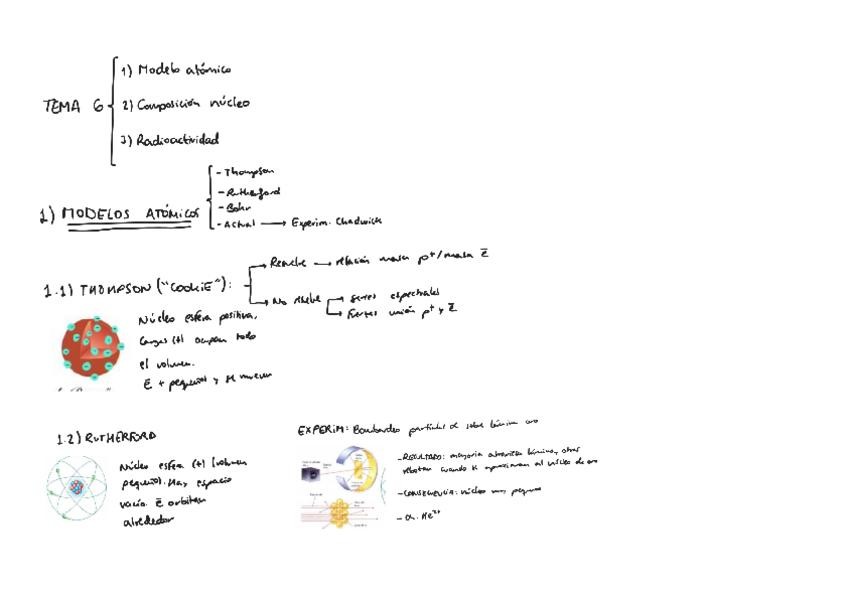 TEMA 6
1) Modelo atómico
2) Composición núcleo
3) Radioactividad
1) MODELOS ATÓMICOS
- Thompson
- Rutherford
- Bohr
- Actual → Experim. Chadwick
1.1) THOMPSON ("COOKIE"):
→ Resuelve → relación masa p⁺/masa e̅
→ No resuelve → series espectrales
→ fuertes unión p⁺ y e̅
Núcleo esfera positiva,
cargas (+) ocupan todo
el volumen.
e̅ + pequeño) y se mueven
1.2) RUTHERFORD
Núcleo esfera (+) (volumen
pequeño). Hay espacio
vacío. e̅ orbitan
alrededor
EXPERIM: Bombardeo partículas α sobre lámina oro
- RESULTADO: mayoría atraviesa lámina, otras
rebotan cuando se aproximan al núcleo de oro
- CONSECUENCIA: núcleo muy pequeño
- α: He²⁺